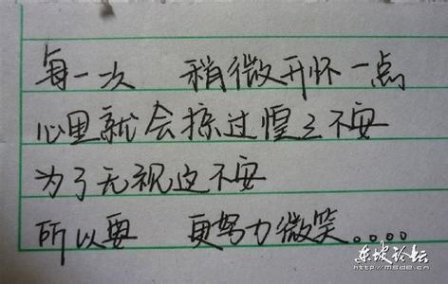 每一次 稍微开怀一点
心里就会掠过惶々不安
为了无视这不安
所以要 更努力微笑。。。。
东坡论坛